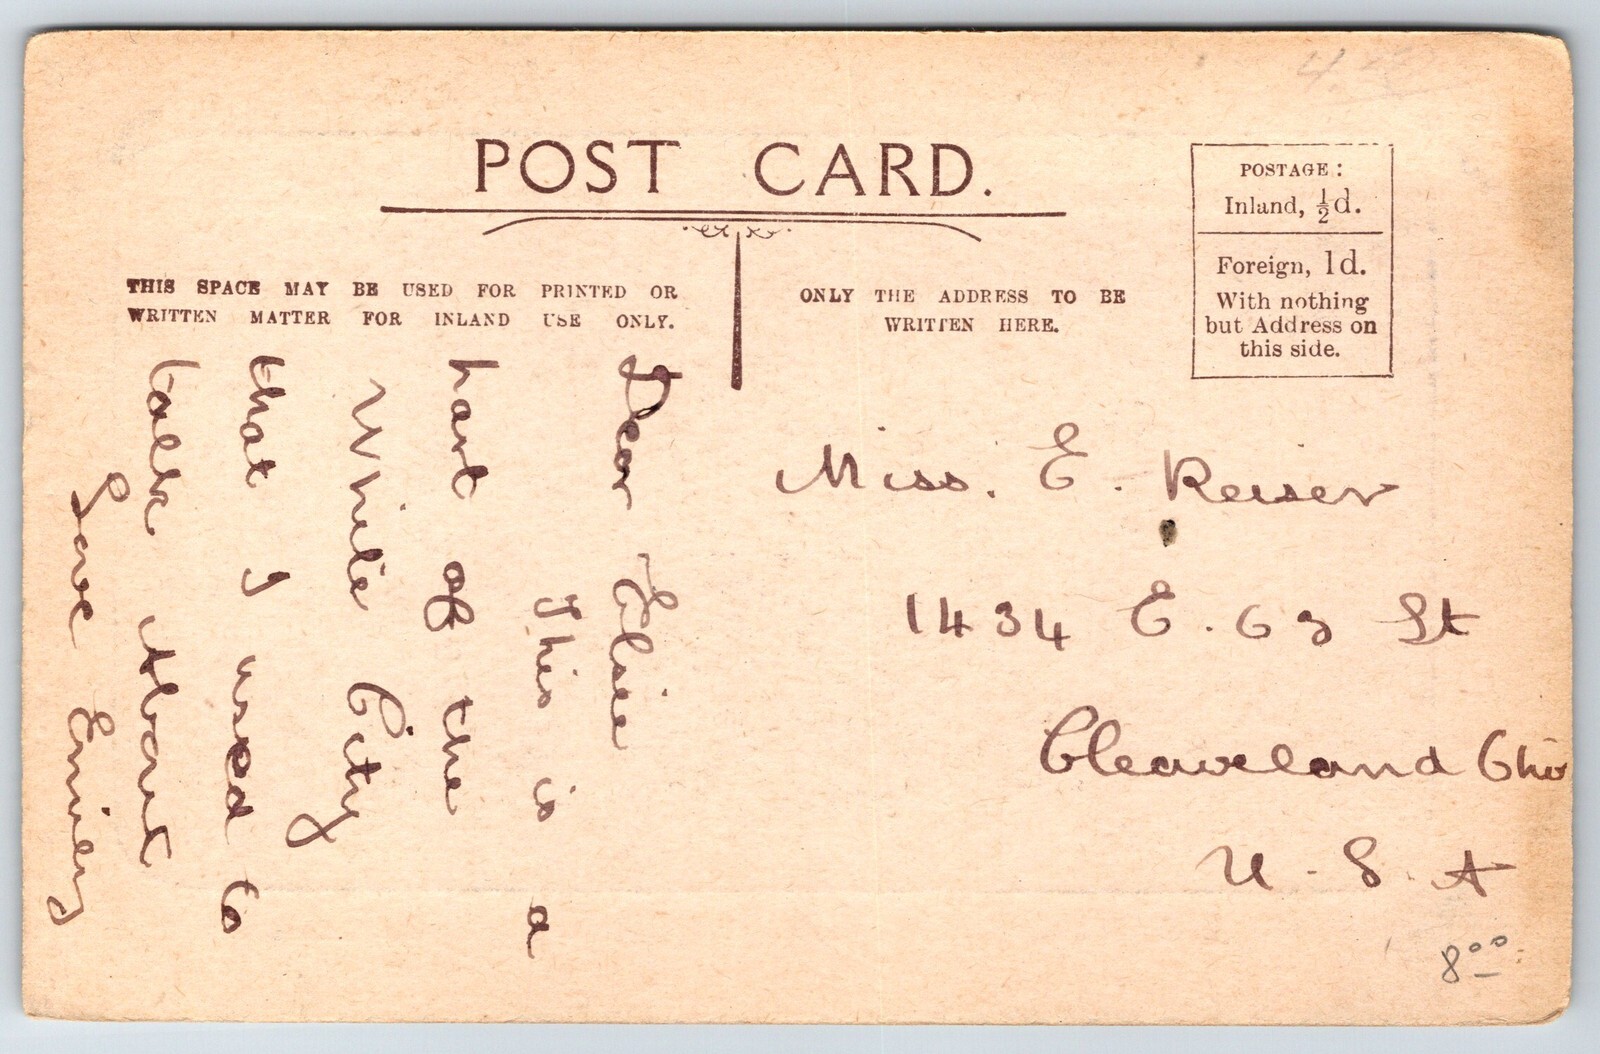 POST CARD.
THIS SPACE MAY BE USED FOR PRINTED OR
WRITTEN MATTER FOR INLAND USE ONLY.
ONLY THE ADDRESS TO BE
WRITTEN HERE.
POSTAGE:
Inland, ½d.
Foreign, 1d.
With nothing
but Address on
this side.
Dear Elsie
This is a
part of the
White City
that I used to
talk About
Love Emiley
Miss. E. Reiser
1434 E. 63 St
Cleaveland Ohio
U.S.A
8⁰⁰